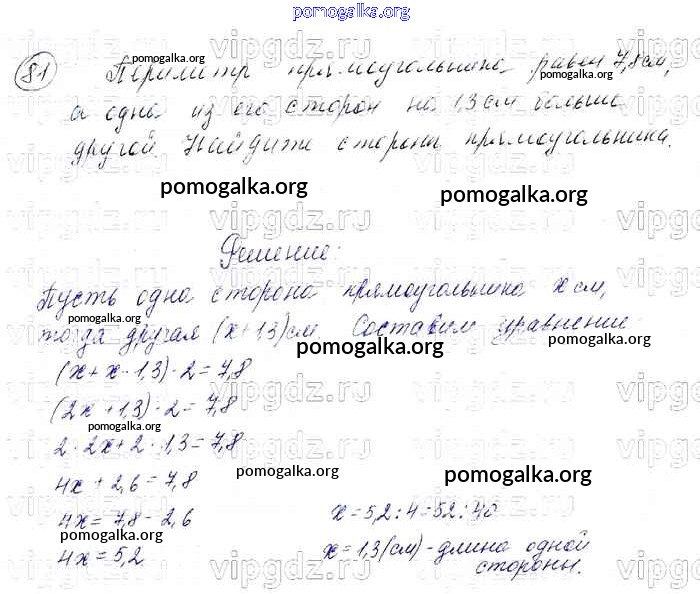 pomogalka.org
81 Периметр прямоугольника равен 7,8 см,
а одна из его сторон на 1,3 см больше
другой. Найдите стороны прямоугольника.
pomogalka.org
pomogalka.org
Решение:
Пусть одна сторона прямоугольника x см,
тогда другая (x+1,3) см. Составим уравнение:
pomogalka.org
(x+x+1,3)·2=7,8
(2x+1,3)·2=7,8
2·2x+2·1,3=7,8
4x+2,6=7,8
pomogalka.org
pomogalka.org
4x=7,8-2,6
4x=5,2
x=5,2:4=52:40
x=1,3(см)-длина одной
стороны.